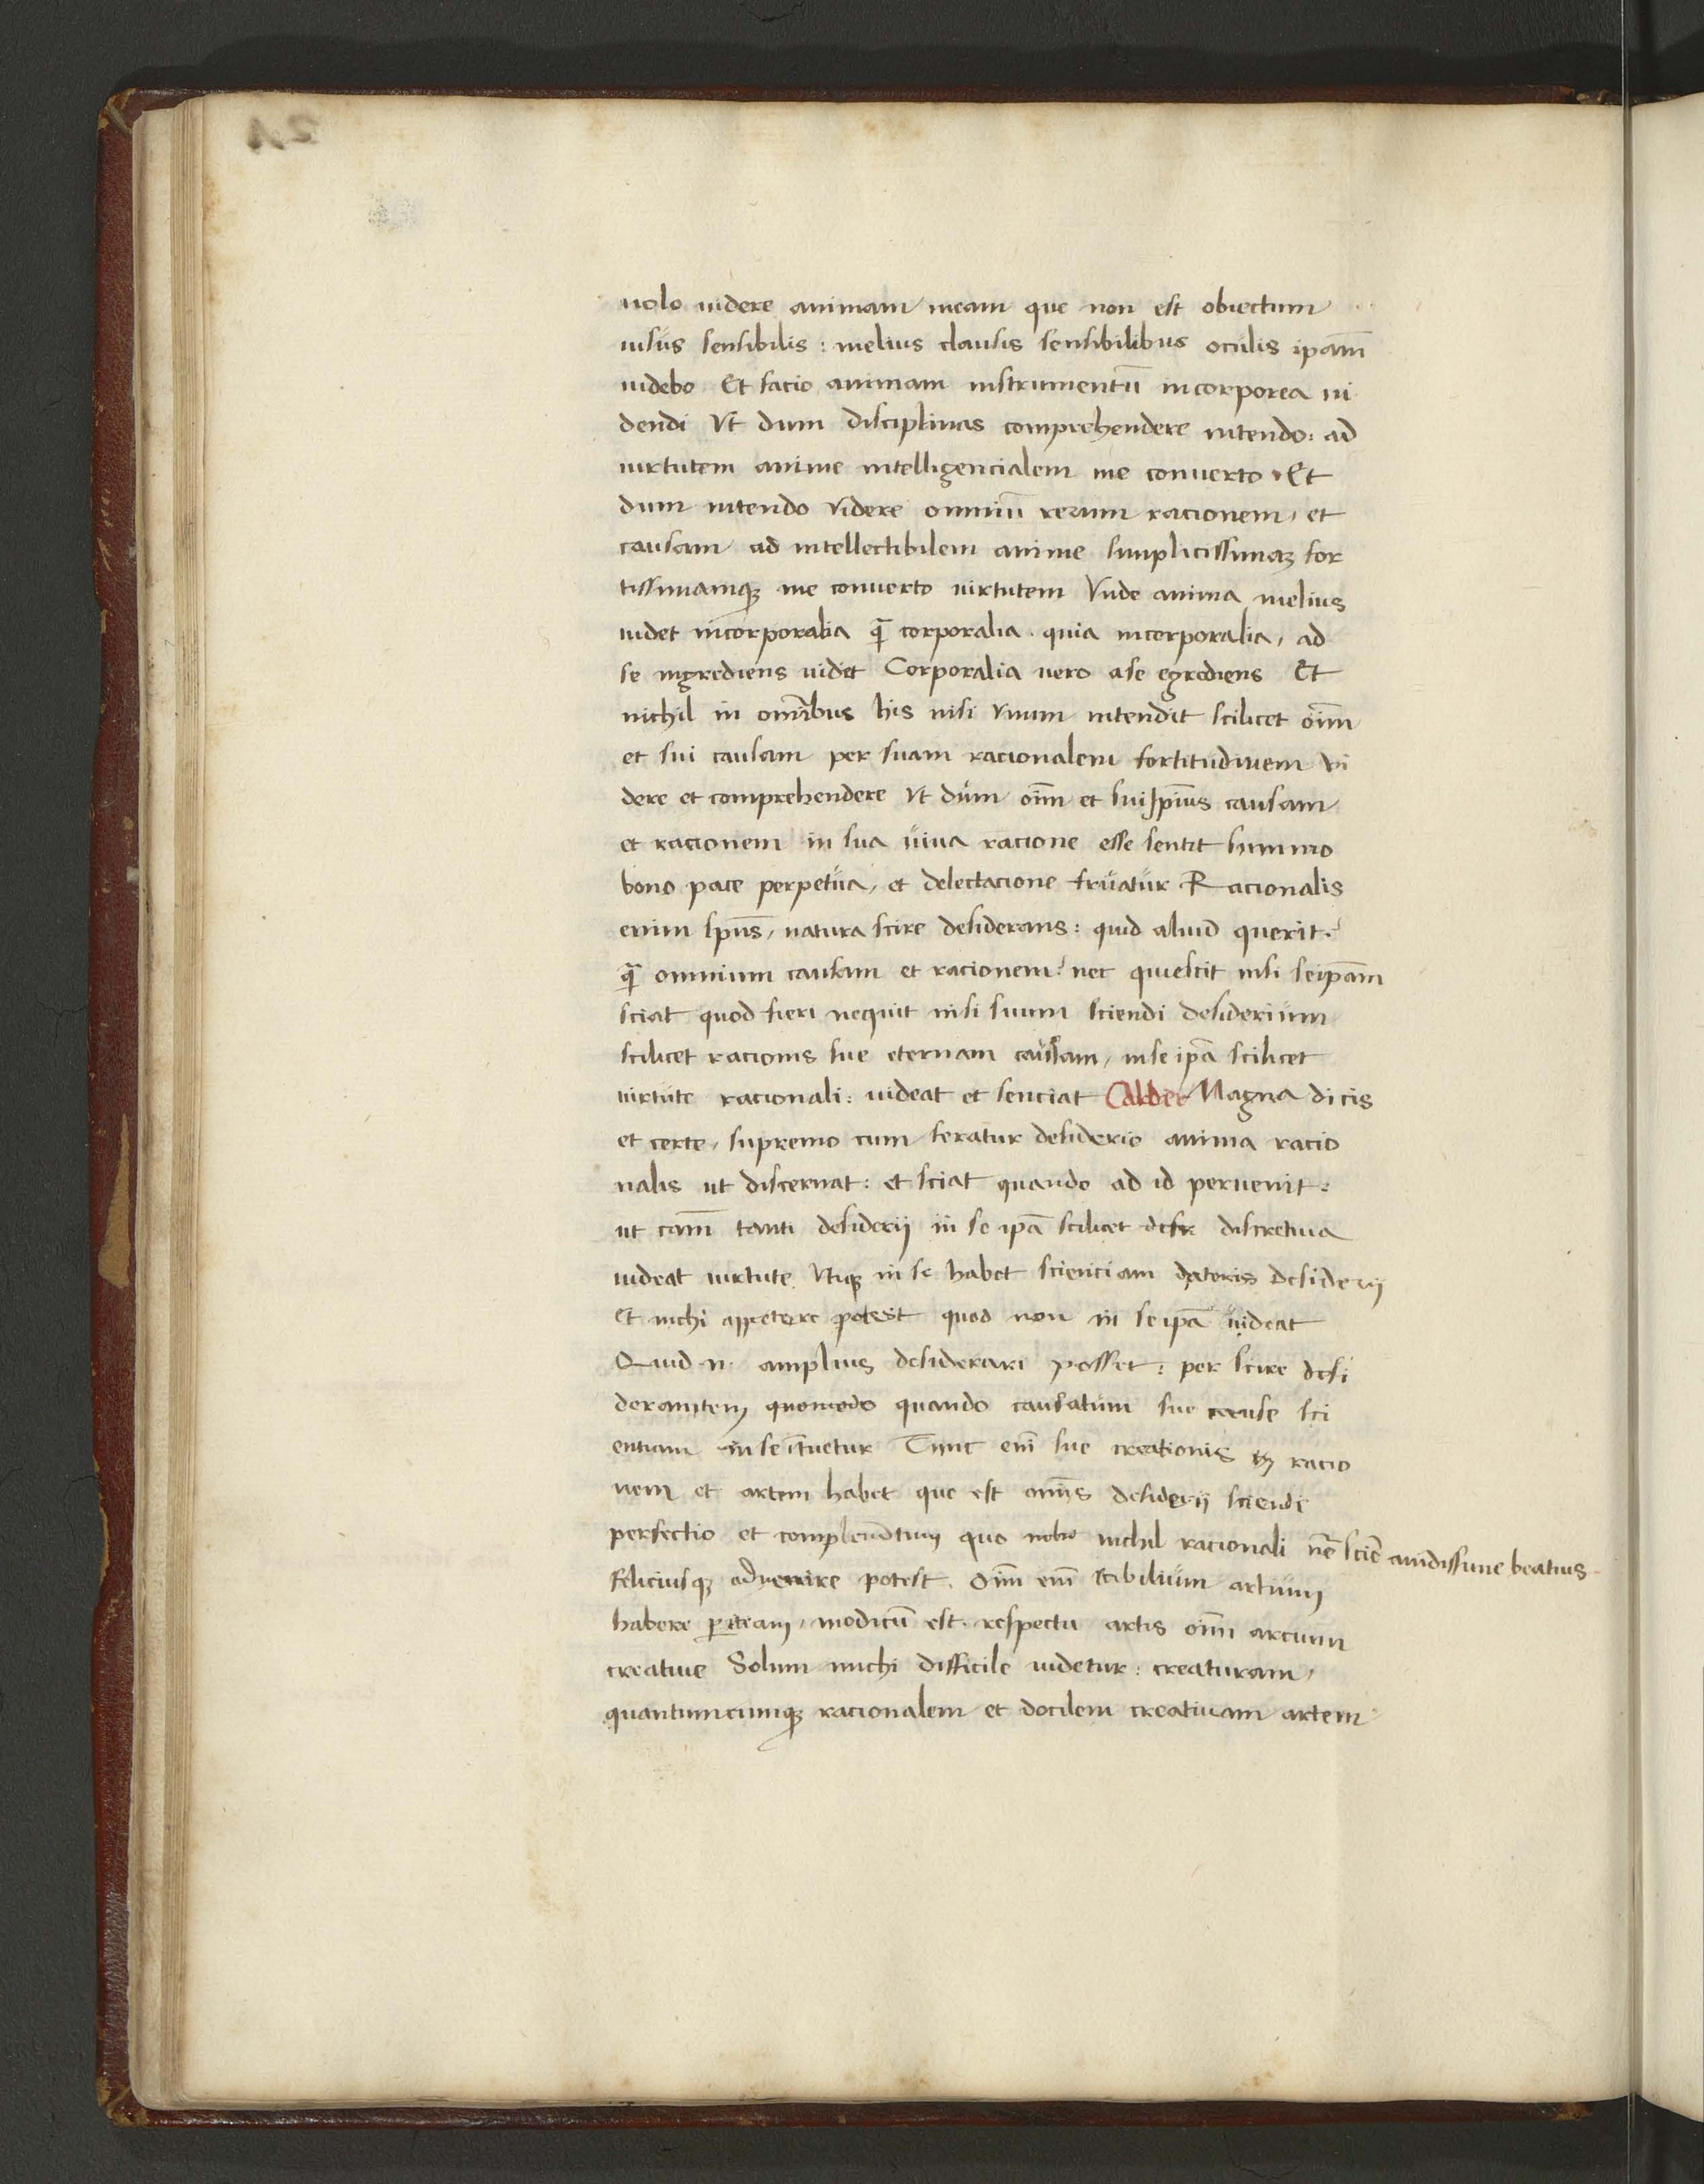 uolo uidere animam meam que non est obiectum
uisus sensibilis: melius clausis sensibilibus oculis ipam̄
uidebo Et facio animam instrumentū incorporea ui
dendi Vt dum disciplinas comprehendere intendo: ad
uirtutem anime intelligencialem me conuerto. Et
dum intendo videre omniū rerum racionem, et
causam ad intellectibilem anime simplicissimaꝫ for
tissimamqꝫ me conuerto uirtutem Vnde anima melius
uidet incorporalia q̄ corporalia. quia incorporalia, ad
se ingrediens uidet Corporalia uero a se egrediens Et
nichil in omībus his nisi vnum intendit scilicet oīm
et sui causam per suam racionalem fortitudinem vi
dere et comprehendere Vt dum oīm et sui ipius causam
et racionem in sua uiua racione esse sentit summo
bono pace perpetua, et delectacione fruatur Racionalis
enim sp̄us, natura scire desiderans: quid aliud querit?
q̄ omnium causam et racionem? nec quiescit nisi seipam̄
sciat quod fieri nequit nisi suum sciendi desiderium
scilicet racionis sue eternam causam, in se ipā scilicet
uirtute racionali: uideat et senciat Albert Magna dicis
et certe, supremo cum feratur desiderio anima racio
nalis ut discernat: et sciat quando ad id peruenit:
ut cam̄ tanti desiderij in se ipā scilicet discretiua
uideat uirtute. Vtiqꝫ in se habet scienciam datoris desiderij
Et nichi appetere potest quod non in se ipā uideat
Quid .n. amplius desiderari posset: per scire desi
derantem quomodo quando causatum sue cause sci
entiam in se ītuetur Tunc enī sue creationis racio
nem et artem habet que est omīs desiderij sciendi
perfectio et complemētum quo nichil racionali nēe sciē auidissime beatius
feliciusqꝫ aduenire potest. Oīm enī scibilium artium
habere periciam, modicū est. respectu artis oīm arcium
creatiue Solum michi difficile uidetur: creaturam,
quantumcumqꝫ racionalem et docilem creatiuam artem